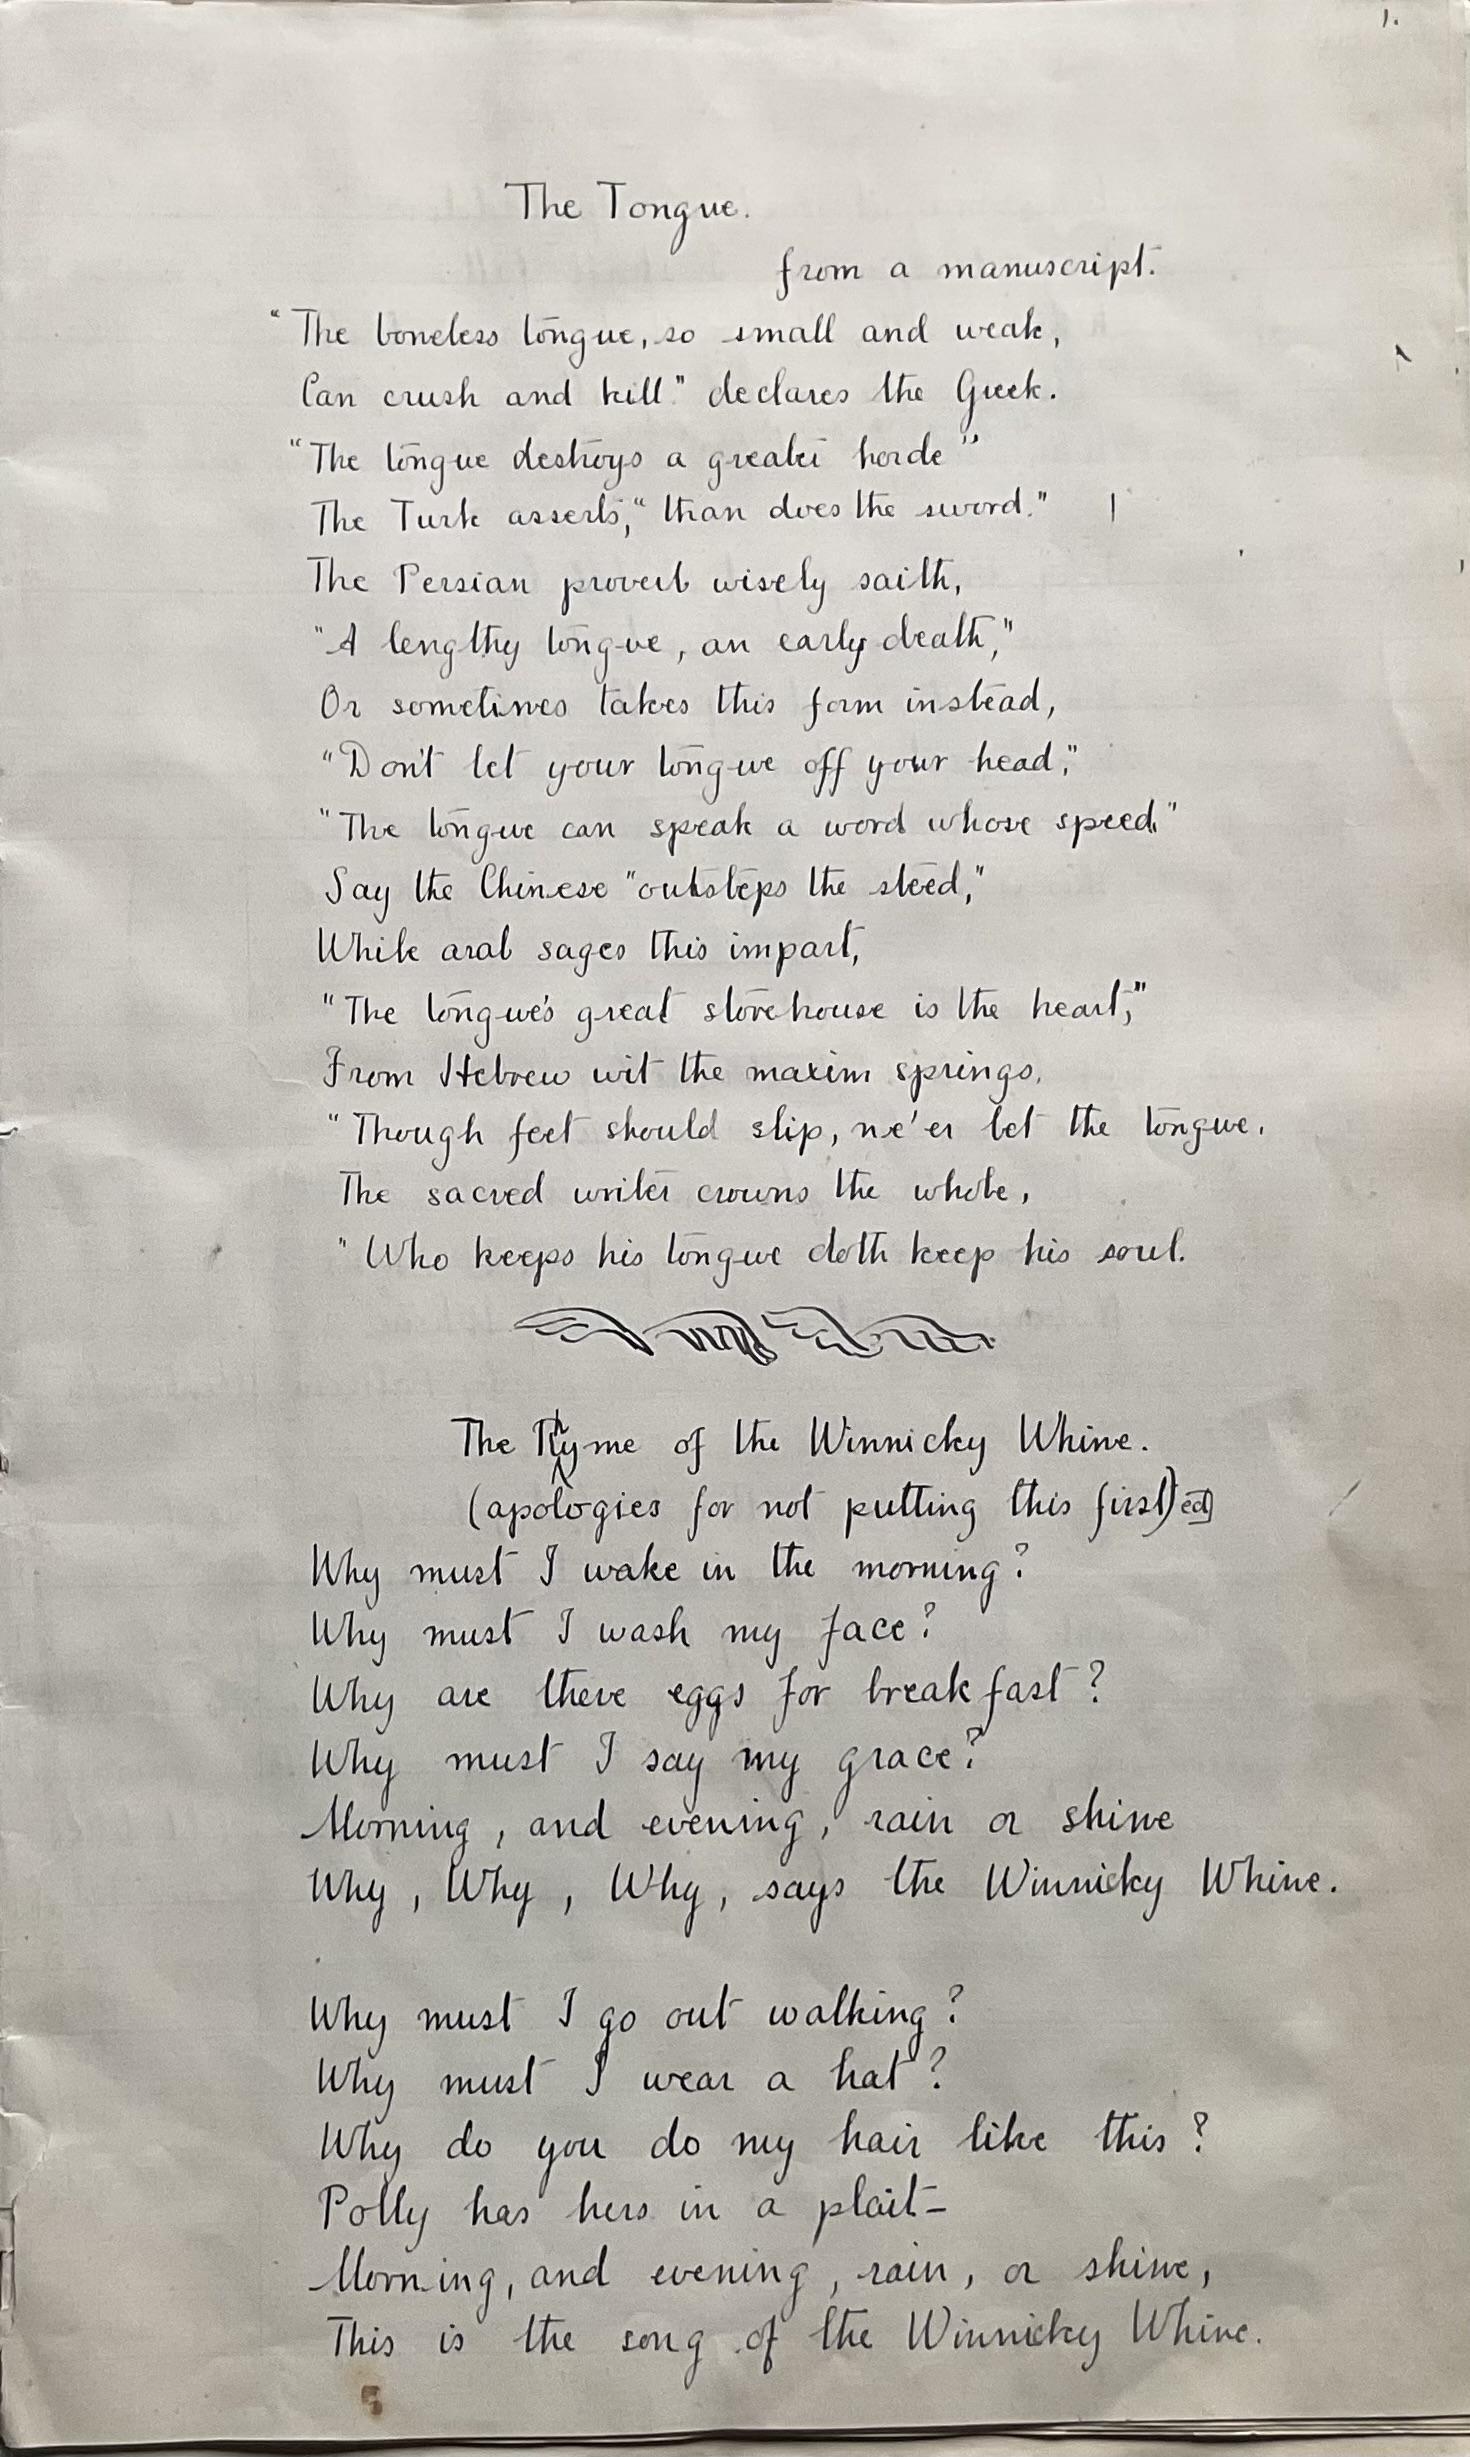 1.
The Tongue.
from a manuscript.
"The boneless tongue, so small and weak,
Can crush and kill" declares the Greek.
"The tongue destroys a greater horde"
The Turk asserts, "than does the sword."
The Persian proverb wisely saith,
"A lengthy tongue, an early death,"
Or sometimes takes this form instead,
"Don't let your tongue off your head,"
"The tongue can speak a word whose speed"
Say the Chinese "outsteps the steed,"
While arab sages this impart,
"The tongue's great storehouse is the heart,"
From Hebrew wit the maxim springs,
"Though feet should slip, ne'er let the tongue.
The sacred writer crowns the whole,
"Who keeps his tongue doth keep his soul.
The Rhyme of the Winnicky Whine.
(apologies for not putting this first) ed
Why must I wake in the morning?
Why must I wash my face?
Why are there eggs for breakfast?
Why must I say my grace?
Morning, and evening, rain or shine
Why, Why, Why, says the Winnicky Whine.
Why must I go out walking?
Why must I wear a hat?
Why do you do my hair like this?
Polly has hers in a plait-
Morning, and evening, rain, or shine,
This is the song of the Winnicky Whine.